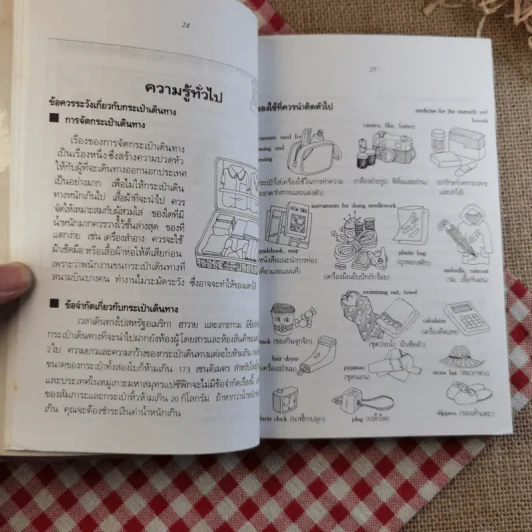 24
ความรู้ทั่วไป
ข้อควรระวังเกี่ยวกับกระเป๋าเดินทาง
■ การจัดกระเป๋าเดินทาง
เรื่องของการจัดกระเป๋าเดินทาง
เป็นเรื่องหนึ่ง ซึ่งสร้างความปวดหัว
ให้กับผู้ที่จะเดินทางออกนอกประเทศ
เป็นอย่างมาก เพื่อไม่ให้กระเป๋าเดิน
ทางหนักเกินไป เสื้อผ้าที่จะนำไป ควร
จัดให้เหมาะสมกับผู้สวมใส่ ของใดที่มี
น้ำหนักมากควรวางไว้ชั้นล่างสุด ของที่
แตกง่าย เช่น เครื่องสำอาง ควรจะใช้
ผ้าเช็ดมือ หรือเสื้อผ้าห่อให้ดีเสียก่อน
เพราะว่าพนักงานขนกระเป๋าเดินทางที่
สนามบินบางคน ทำงานไม่ระมัดระวัง ซึ่งอาจจะทำให้ของแตกได้
■ ข้อจำกัดเกี่ยวกับกระเป๋าเดินทาง
เวลาเดินทางไปสหรัฐอเมริกา ฮาวาย และเกาะกวม
กระเป๋าเดินทางที่จะนำไปฝากยังห้องผู้โดยสารและห้องสินค้าของ
2 ใบ ความยาวและความกว้างของกระเป๋าเดินทางแต่ละใบห้ามเกิน
ขนาดของกระเป๋าทั้งสองใบก็ห้ามเกิน 173 เซนติเมตร สำหรับ
และประเทศในหมู่เกาะมหาสมุทรแปซิฟิกจะไม่มีข้อจำกัดเรื่องนี้
ของสัมภาระและกระเป๋าหิ้วห้ามเกิน 20 กิโลกรัม ถ้าหากว่าน้ำหนัก
เกิน คุณจะต้องชำระเงินค่าน้ำหนักเกิน
25
ของใช้ที่ควรนำติดตัวไป
medicine for the stomach and
camera, film, battery
(กล้องถ่ายรูป, ฟิล์มและถ่าน)
instruments for doing needlework
(เครื่องมือเย็บปักถักร้อย)
plastic bag
(ถุงพลาสติก)
umbrella, raincoat
(ร่ม, เสื้อกันฝน)
guidebook, map
หนังสือแนะนำการท่อง
เที่ยวและแผนที่)
swimming suit, towel
(ชุดว่ายน้ำ, ผ้าเช็ดตัว)
calculator
(เครื่องคิดเลข)
hair dryer
(เครื่องเป่าผม)
pyjamas
(ชุดนอน)
straw hat (หมวกฟาง)
alarm clock (นาฬิกาปลุก)
plug (ปลั๊กไฟ)
slippers (รองเท้าแตะ)